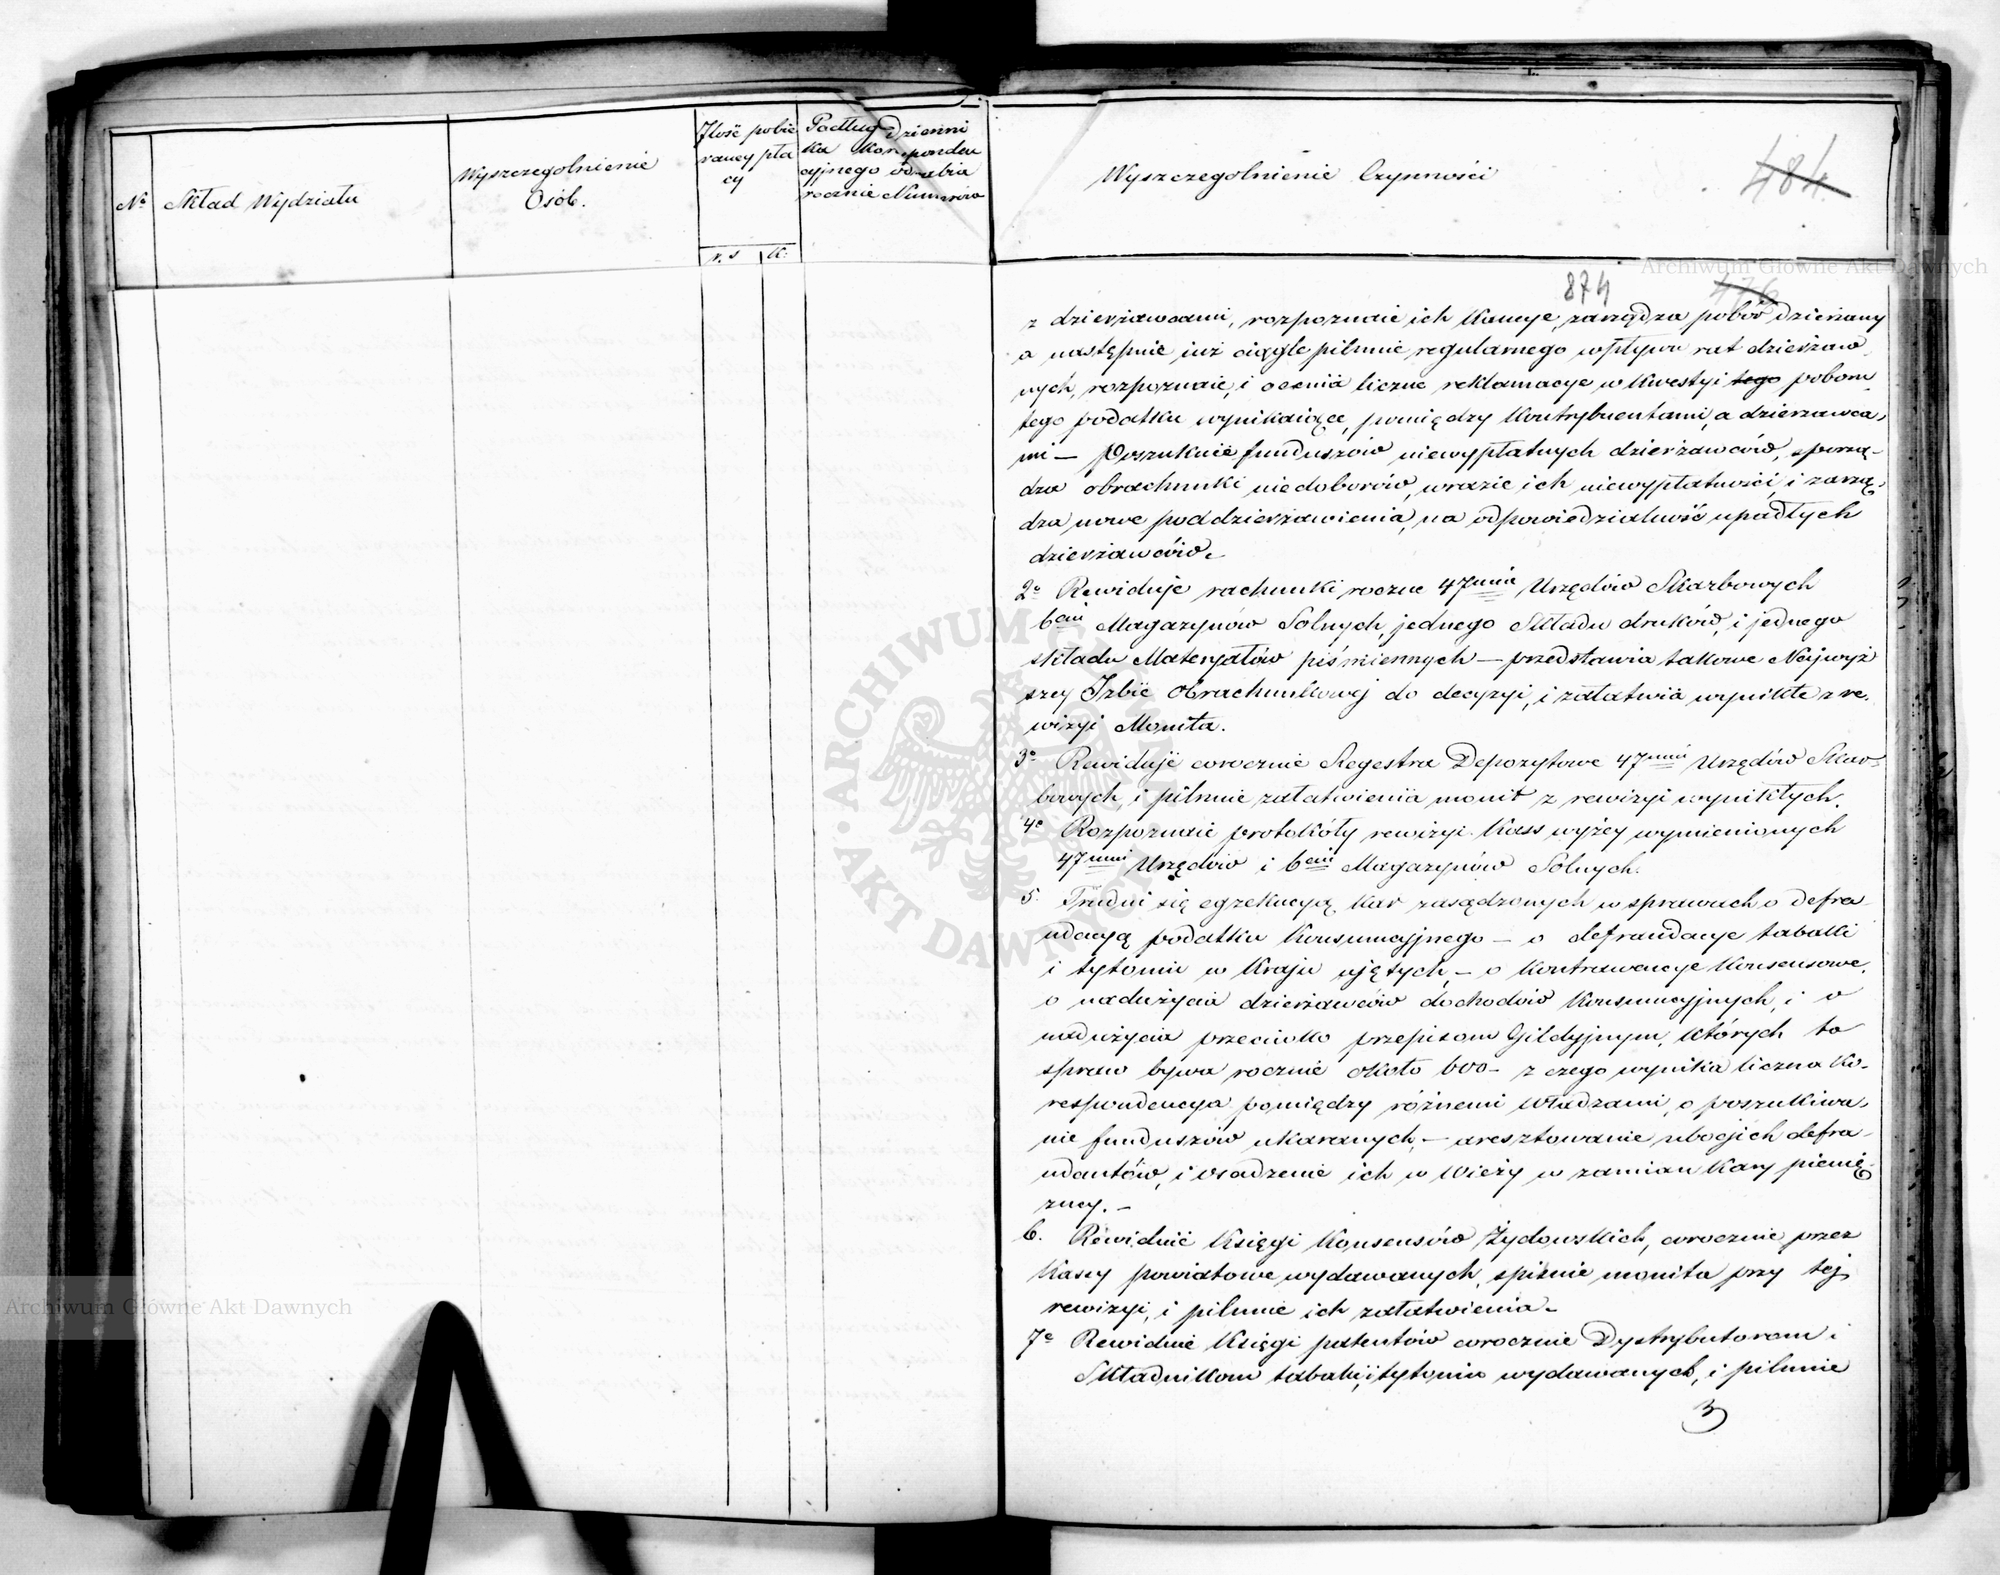 No
Skład Wydziału
Wyszczególnienie
Osób.
Ilość pobie
raney pła
cy
r. s k:
Podług Dzienni
ka Korrespondeu
cyjnego odrabia
rocznie Numerów
Wyszczególnienie Czynności
484
476
874
z dzierżawcami, rozpoznaie ich Kaucye, zarządza pobór dzierżawy
a następnie już ciągle pilnuie regularnego wpływu rat dzierżaw
nych, rozpoznaie, i ocenia liczne reklamacye w Kwestyi tego poboru
tego podatku wynikaiące, pomiędzy Kontrybuentami, a dzierżawca
mi — Poszukuie funduszów niewypłatnych dzierżawców, sporzą-
dza obrachunki niedoborów, wrazie ich niewypłatności, i zarzą-
dza nowe poddzierżawienia, na odpowiedzialność upadłych
dzierżawców.
2o Rewiduje rachunki roczne 47miu Urzędów Skarbowych
6ciu Magazynów Solnych, jednego Składu druków, i jednego
składu Materyałów piśmiennych — przedstawia takowe Najwyż
szey Izbie Obrachunkowej do decyzyi, i załatwia wynikłe z re-
wizyi Monita.
3o Rewiduje corocznie Regestra Depozytowe 47miu Urzędów Skar-
bowych, i pilnuie załatwienia monit z rewizyi wynikłych.
4o Rozpoznaie protokóły rewizyi Kass wyżey wymienionych
47miu Urzędów i 6ciu Magazynów Solnych.
5. Trudni się egzekucyą kar zasądzonych w sprawach o defra-
udacyą podatku Konsumcyjnego — o defraudacye tabaki
i tytoniu w Kraju ujętych, — o Kontrawencye Konsensowe,
o nadużycia dzierżawców dochodów Konsumcyjnych, i o
nadużycia przeciwko przepisom Gildyjnym, których to
spraw bywa rocznie około 600 — z czego wynika liczna Ko-
respondencya pomiędzy różnemi Władzami, o poszukiwa-
nie funduszów ukaranych, — aresztowanie ubogich defra-
udantów, i osadzenie ich w Wieży w zamian Kary pienię-
zney. —
6. Rewiduie Księgi Konsensów Żydowskich, corocznie przez
Kasy powiatowe wydawanych, spisuie monita przy tej
rewizyi, i pilnuie ich załatwienia.
7o Rewiduie Księgi patentów corocznie Dystrybutorom i
Składnikom tabaki, i tytoniu wydawanych, i pilnuie
3
ARCHIWUM GŁÓWNE AKT DAWNYCH
Archiwum Główne Akt Dawnych
Archiwum Główne Akt Dawnych